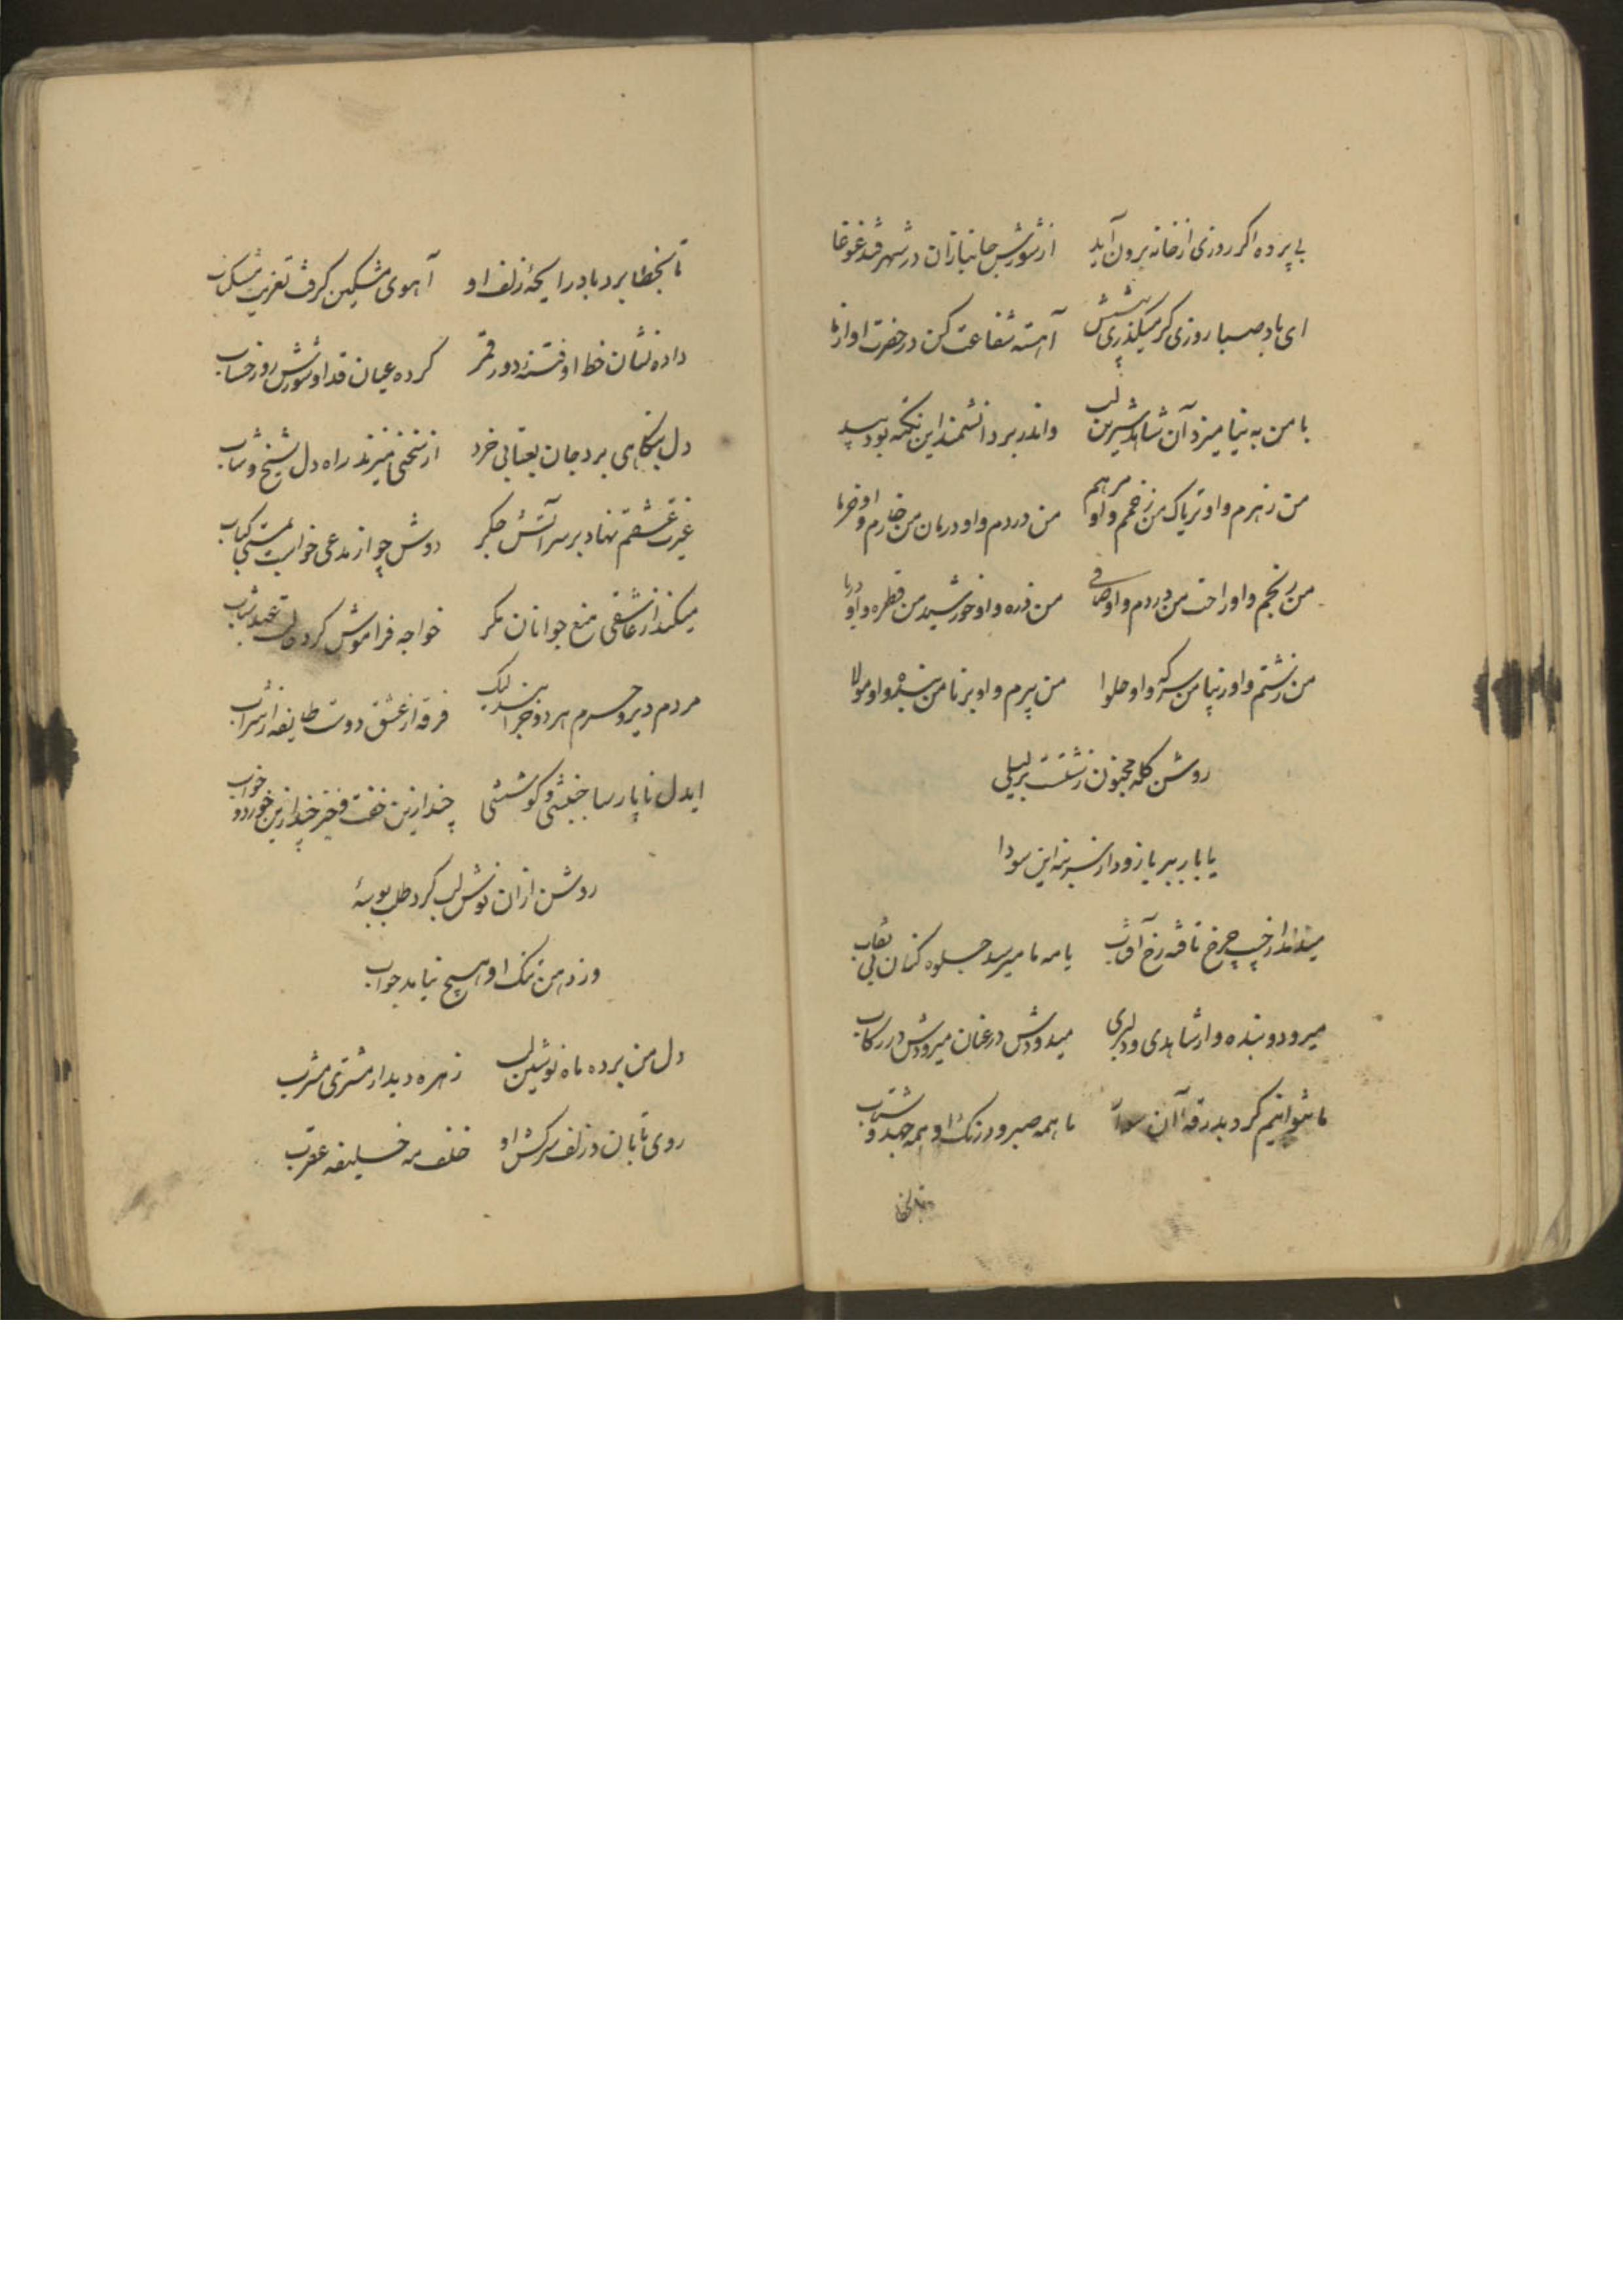 بی پرده اگر روزی از خانه برون آید از شورش جانبازان در شهر فتد غوغا
ای باد صبا روزی گر میگذری پیشش آهسته شفاعت کن در حضرت او از ما
با من به نیامیزد آن شاهد شیرین لب واندر بر دانشمند این نکته بود پیدا
من زهرم و او تریاک من زخمم و او مرهم من دردم و او درمان من خارم و او خرما
من رنجم و او راحت من دردم و او صافی من ذره و او خورشید من قطره و او دریا
من زشتم و او زیبا من سرکه و او حلوا من پیرم و او برنا من بنده و او مولا
روشن گله مجنون زشتست بر لیلی
یا بار ببر یا زود از سر بنه این سودا
میدمد از چرخ تافته رخ آفتاب یا مه ما میرسد جلوه کنان بی نقاب
میرود و بنده وار شاهدی و دلبری میدودش در عنان میرودش در رکاب
ما نتوانیم کرد بدرقه آن ما همه صبر و درنگ او همه جهد و شتاب
تا بخطا
تا بخطا برد باد رایحهٔ زلف او آهوی مشکین گرفت تعزیت مشکناب
داده نشان خط او فتنه دور قمر کرده عیان قد او شورش روز حساب
دل بنگاهی برد جان بعتابی خرد از نتخی میزند راه دل شیخ و شاب
غیرت عشقم نهاد بر سر آتش جگر دوش چو از مدعی خواست بمستی کباب
میکند از عاشقی منع جوانان مگر خواجه فراموش کرد عهد شباب
مردم دیر و حرم هر دو خرابند لیک فرقه از عشق دوست طایفه از شراب
ایدل ناپارسا جنبشی و کوششی چند ازین خفت و خیز چند ازین خورد و خواب
روشن از ان نوش لب کرد طلب بوسهٔ
وز دهن تنگ او هیچ نیامد جواب
دل من برده ماه نوشین لب زهره دیدار مشتری مشرب
روی تابان و زلف سرکش او خلف مه خلیفه عقرب